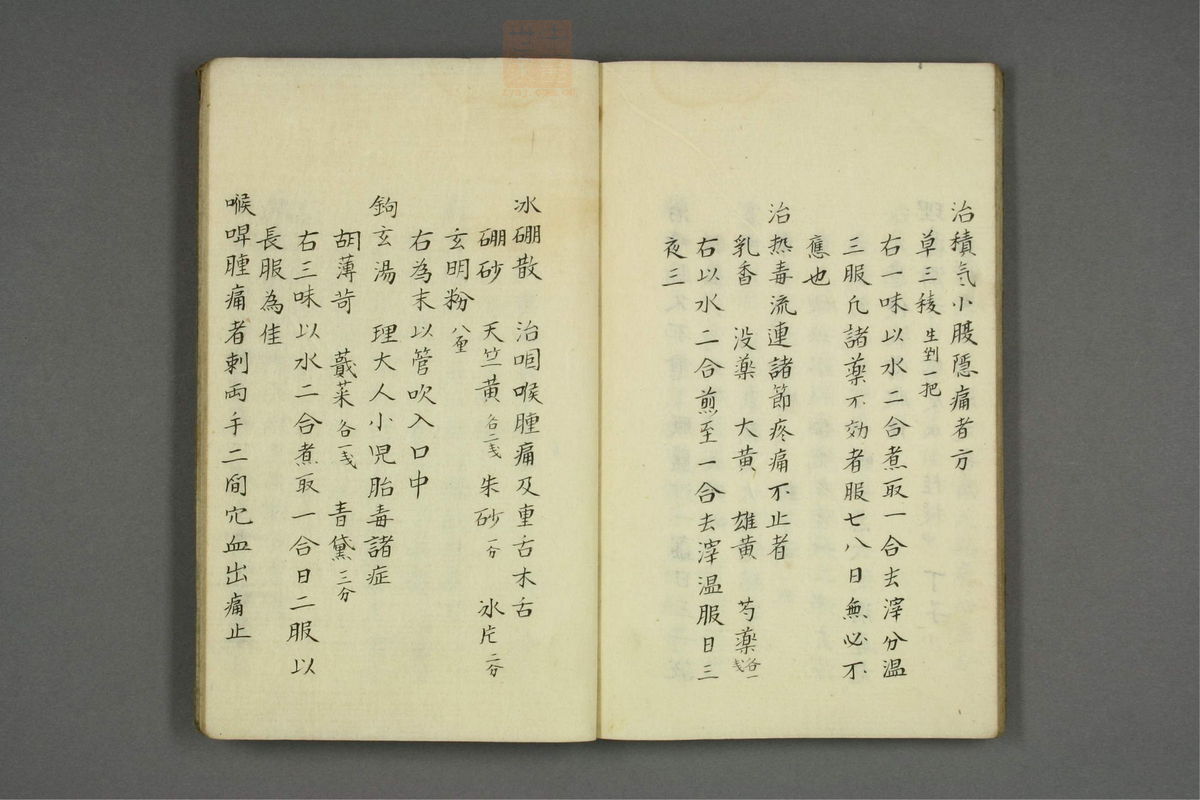 治積气小腹隠痛者方
草三稜 生剉一把
右一味以水二合煮取一合去滓分温
三服凢諸薬不効者服七八日無必不
應也
治热毒流連諸節疼痛不止者
乳香 没薬 大黄 雄黄 芍薬 各一戋
右以水二合煎至一合去滓温服日三
夜三
冰硼散 治咽喉腫痛及重舌木舌
硼砂 天竺黄 各二戋 朱砂 一分 冰片 二分
玄明粉 八
右為末以管吹入口中
鉤玄湯 理大人小児胎毒諸症
胡薄苛 蕺菜 各一戋 青黛 三分
右三味以水二合煮取一合日二服以
長服為佳
喉啤腫痛者刺両手二間穴血出痛止